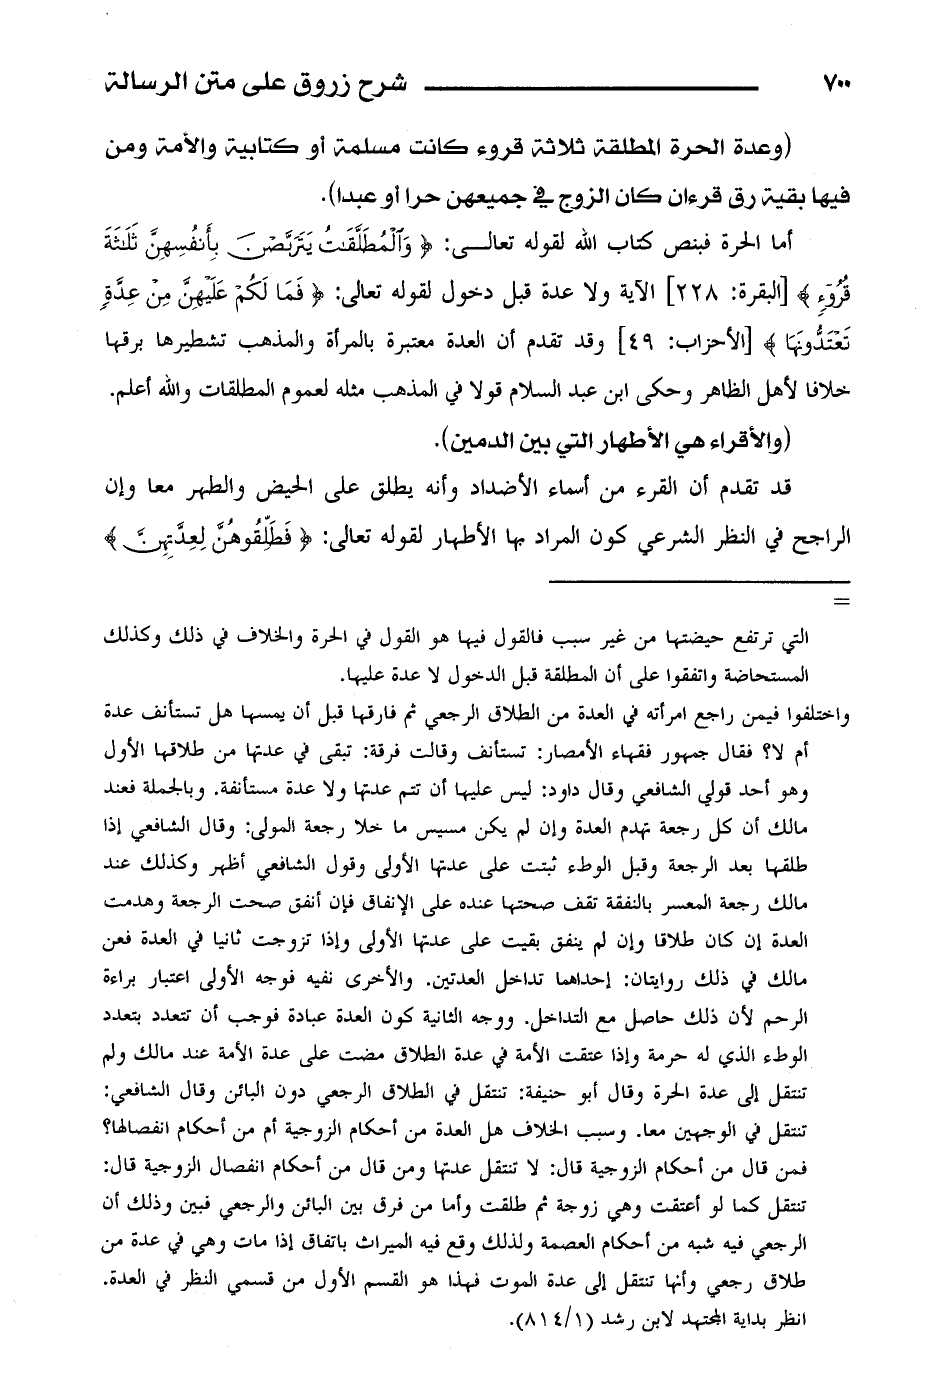 ٧٠٠ شرح زروق على متن الرسالة
(وعدة الحرة المطلقة ثلاثة قروء كانت مسلمة أو كتابية والأمة ومن
فيها بقية رق قرءان كان الزوج في جميعهن حرا أو عبدا).
أما الحرة فبنص كتاب الله لقوله تعالى: ﴿ وَٱلْمُطَلَّقَٰتُ يَتَرَبَّصْنَ بِأَنفُسِهِنَّ ثَلَٰثَةَ
قُرُوٓءٍ ﴾ [البقرة: ٢٢٨] الآية ولا عدة قبل دخول لقوله تعالى: ﴿ فَمَا لَكُمْ عَلَيْهِنَّ مِنْ عِدَّةٍ
تَعْتَدُّونَهَا ﴾ [الأحزاب: ٤٩] وقد تقدم أن العدة معتبرة بالمرأة والمذهب تشطيرها برقها
خلافا لأهل الظاهر وحكى ابن عبد السلام قولا في المذهب مثله لعموم المطلقات والله أعلم.
(والأقراء هي الأطهار التي بين الدمين).
قد تقدم أن القرء من أسماء الأضداد وأنه يطلق على الحيض والطهر معا وإن
الراجح في النظر الشرعي كون المراد بها الأطهار لقوله تعالى: ﴿ فَطَلِّقُوهُنَّ لِعِدَّتِهِنَّ ﴾
=
التي ترتفع حيضتها من غير سبب فالقول فيها هو القول في الحرة والخلاف في ذلك وكذلك
المستحاضة واتفقوا على أن المطلقة قبل الدخول لا عدة عليها.
واختلفوا فيمن راجع امرأته في العدة من الطلاق الرجعي ثم فارقها قبل أن يمسها هل تستأنف عدة
أم لا؟ فقال جمهور فقهاء الأمصار: تستأنف وقالت فرقة: تبقى في عدتها من طلاقها الأول
وهو أحد قولي الشافعي وقال داود: ليس عليها أن تتم عدتها ولا عدة مستأنفة. وبالجملة فعند
مالك أن كل رجعة تهدم العدة وإن لم يكن مسيس ما خلا رجعة المولى: وقال الشافعي إذا
طلقها بعد الرجعة وقبل الوطء ثبتت على عدتها الأولى وقول الشافعي أظهر وكذلك عند
مالك رجعة المعسر بالنفقة تقف صحتها عنده على الإنفاق فإن أنفق صحت الرجعة وهدمت
العدة إن كان طلاقا وإن لم ينفق بقيت على عدتها الأولى وإذا تزوجت ثانيا في العدة فعن
مالك في ذلك روايتان: إحداهما تداخل العدتين. والأخرى نفيه فوجه الأولى اعتبار براءة
الرحم لأن ذلك حاصل مع التداخل. ووجه الثانية كون العدة عبادة فوجب أن تتعدد بتعدد
الوطء الذي له حرمة وإذا عتقت الأمة في عدة الطلاق مضت على عدة الأمة عند مالك ولم
تنتقل إلى عدة الحرة وقال أبو حنيفة: تنتقل في الطلاق الرجعي دون البائن وقال الشافعي:
تنتقل في الوجهين معا. وسبب الخلاف هل العدة من أحكام الزوجية أم من أحكام انفصالها؟
فمن قال من أحكام الزوجية قال: لا تنتقل عدتها ومن قال من أحكام انفصال الزوجية قال:
تنتقل كما لو أعتقت وهي زوجة ثم طلقت وأما من فرق بين البائن والرجعي فبين وذلك أن
الرجعي فيه شبه من أحكام العصمة ولذلك وقع فيه الميراث باتفاق إذا مات وهي في عدة من
طلاق رجعي وأنها تنتقل إلى عدة الموت فهذا هو القسم الأول من قسمي النظر في العدة.
انظر بداية المجتهد لابن رشد (٨١٤/١).